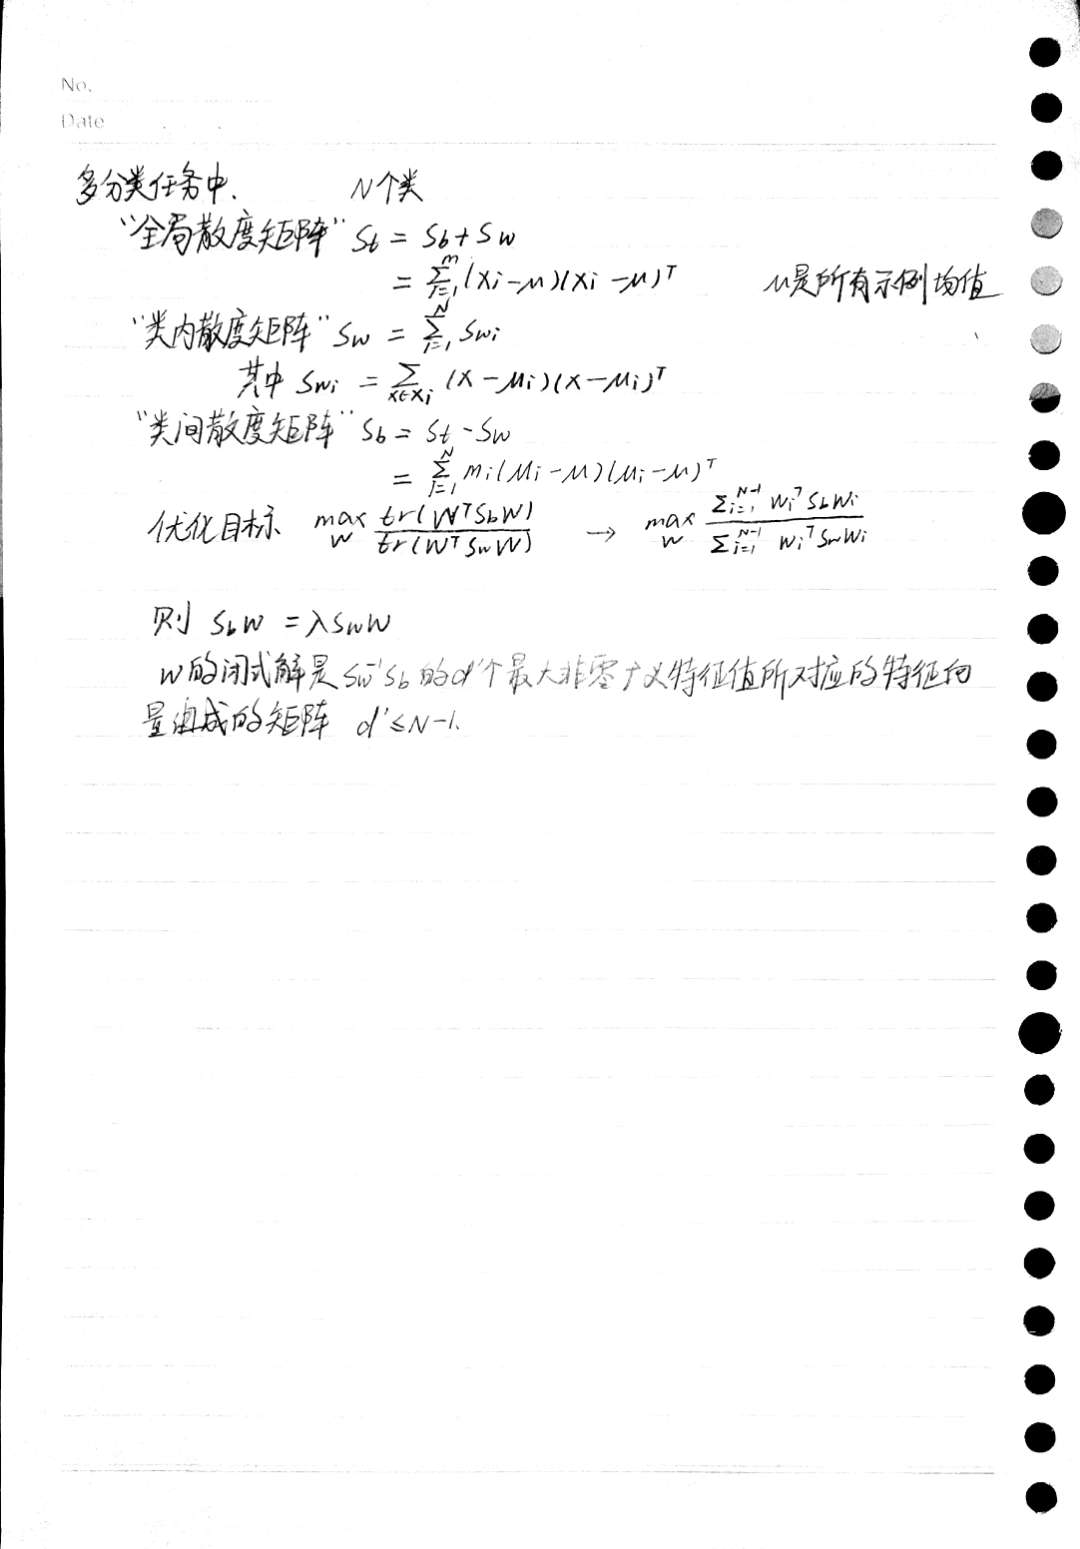 No.
Date
多分类任务中. N个类
“全局散度矩阵” St = Sb + Sw
= ∑_{i=1}^{m} (xi - μ)(xi - μ)^T μ是所有示例均值
“类内散度矩阵” Sw = ∑_{i=1}^{N} Swi
其中 Swi = ∑_{x∈Xi} (x - μi)(x - μi)^T
“类间散度矩阵” Sb = St - Sw
= ∑_{i=1}^{N} mi(μi - μ)(μi - μ)^T
优化目标 max_W tr(W^T Sb W) / tr(W^T Sw W) → max_W ∑_{i=1}^{N-1} wi^T Sb wi / ∑_{i=1}^{N-1} wi^T Sw wi
则 SbW = λSwW
W的闭式解是 Sw^{-1}Sb 的d'个最大非零广义特征值所对应的特征向
量组成的矩阵 d' ≤ N-1.